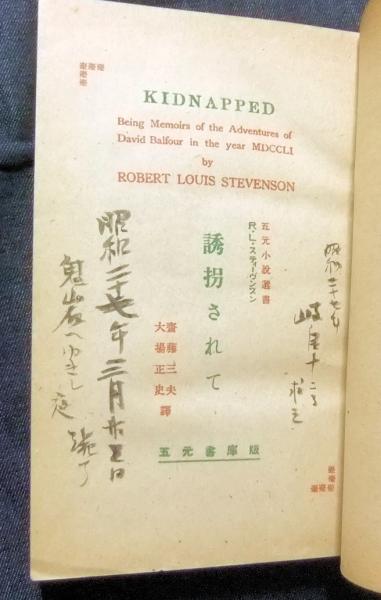 KIDNAPPED
Being Memoirs of the Adventures of
David Balfour in the year MDCCLI
by
ROBERT LOUIS STEVENSON
五元小說選書
R・L・スティーヴンスン
誘拐されて
齋藤三夫
大場正史 譯
五元書庫版
昭和二十七年
岐阜十二
求之
昭和二十七年三月廿五日
鬼岩へ